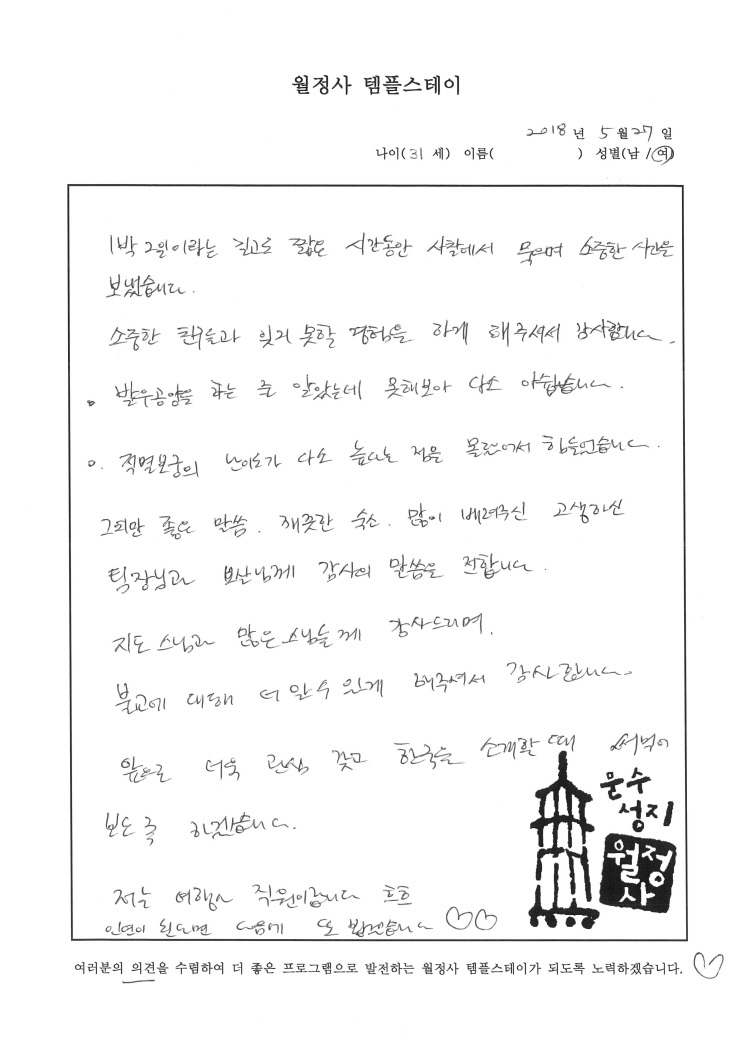 월정사 템플스테이
2018 년 5 월 27 일
나이( 31 세) 이름( ) 성별(남 / 여)
1박 2일이라는 길고도 짧은 시간동안 사찰에서 묵으며 소중한 시간을
보냈습니다.
소중한 친구들과 잊지 못할 경험을 하게 해주셔서 감사합니다.
발우공양을 하는 줄 알았는데 못해보아 다소 아쉽습니다.
적멸보궁의 난이도가 다소 높다는 점을 몰랐어서 힘들었습니다.
그외만 좋은 말씀. 깨끗한 숙소. 많이 배려주신 고생하신
팀장님과 보살님께 감사의 말씀을 전합니다.
지도 스님과 많은 스님들께 감사드리며,
불교에 대해 더 알 수 있게 해주셔서 감사합니다.
앞으로 더욱 관심 갖고 한국을 소개할 때 써먹어
보도록 하겠습니다.
저는 여행사 직원이랍니다 흐흐
인연이 된다면 다음에 또 뵙겠습니다
문수
성지
월정
사
여러분의 의견을 수렴하여 더 좋은 프로그램으로 발전하는 월정사 템플스테이가 되도록 노력하겠습니다.